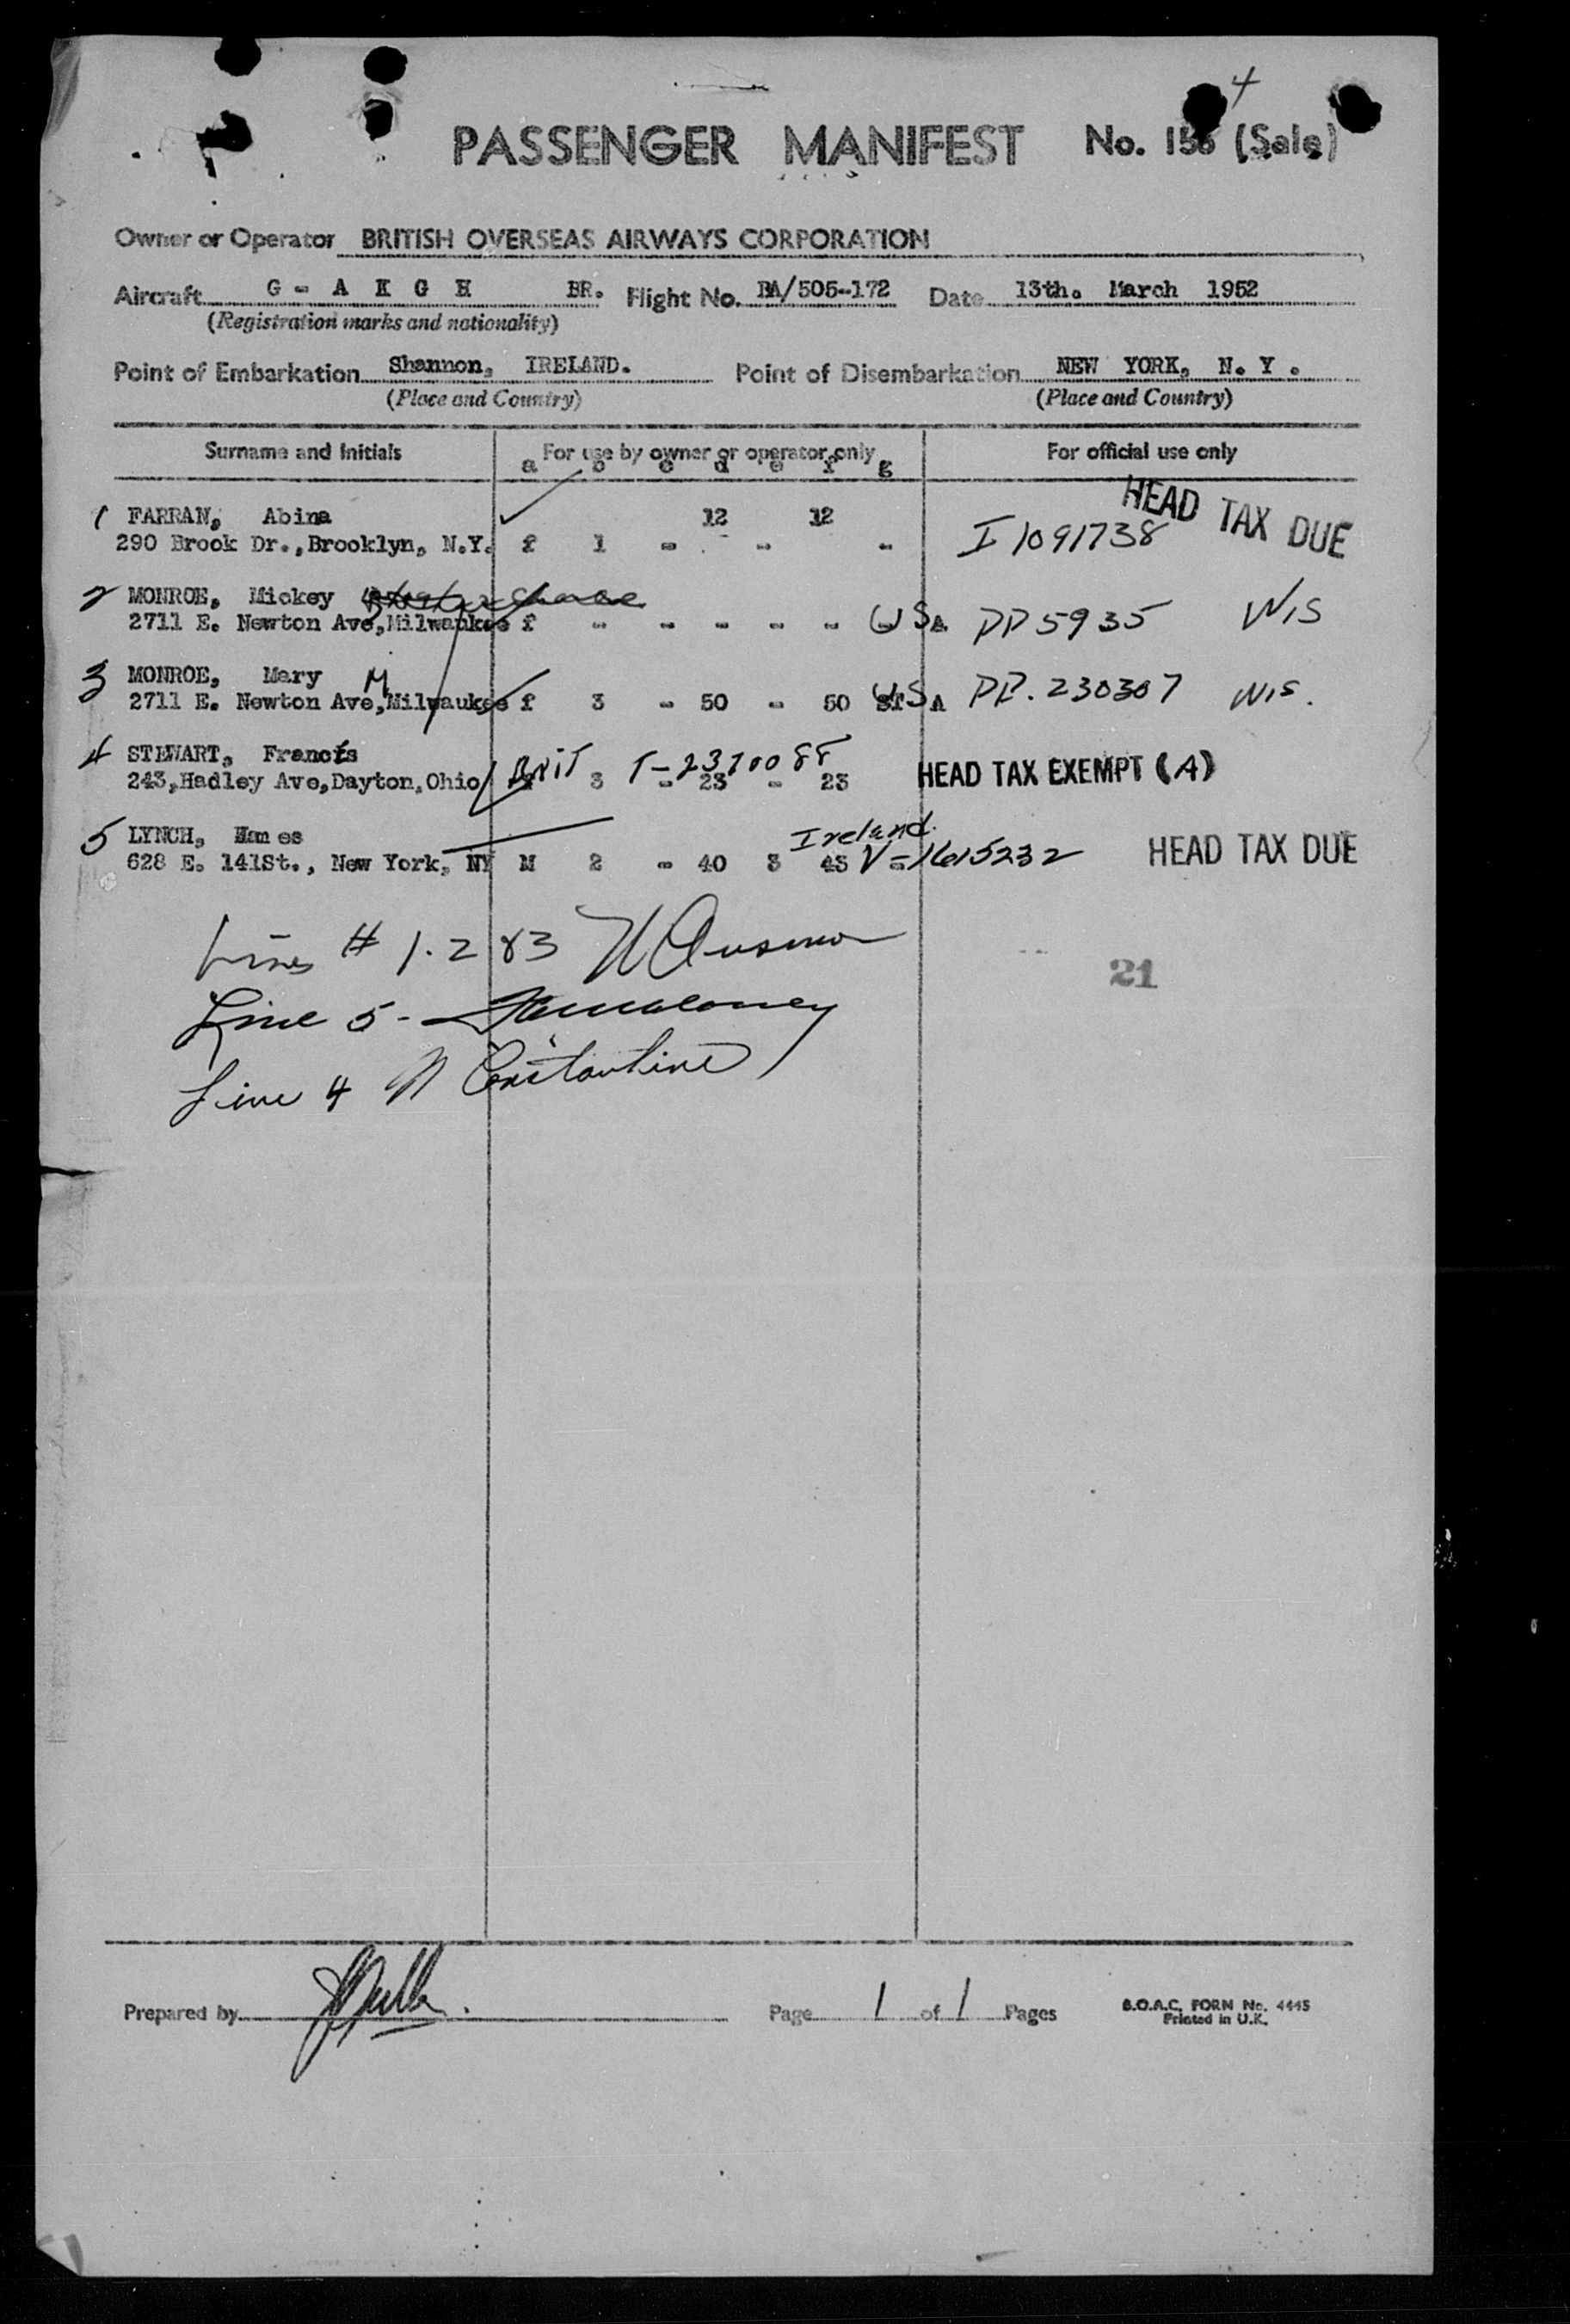 4
PASSENGER MANIFEST No. 156 (Sale)
Owner or Operator BRITISH OVERSEAS AIRWAYS CORPORATION
Aircraft G - A K G H BR. Flight No. BA/505-172 Date 13th. March 1952
(Registration marks and nationality)
Point of Embarkation Shannon, IRELAND. Point of Disembarkation NEW YORK, N. Y .
(Place and Country) (Place and Country)
Surname and Initials For use by owner or operator only For official use only
a b c d e f g
1 FARRAN, Abina 12 12 HEAD TAX DUE
290 Brook Dr.,Brooklyn, N.Y. f 1 - - - I 1091738
2 MONROE, Mickey
2711 E. Newton Ave,Milwaukee f - - - - - USA PP 5935 WIS
3 MONROE, Mary M
2711 E. Newton Ave,Milwaukee f 3 - 50 - 50 USA PP. 230307 WIS.
4 STEWART, Francis Brit T-2370088
243,Hadley Ave,Dayton,Ohio 3 - 23 - 23 HEAD TAX EXEMPT (A)
5 LYNCH, Ireland.
628 E. 141St., New York, NY M 2 - 40 3 43 V-1615232 HEAD TAX DUE
Lines # 1.2 &3
Line 5-
Line 4 N Constantine
21
Prepared by
Page 1 of 1 Pages B.O.A.C. FORM No. 4445
Printed in U.K.